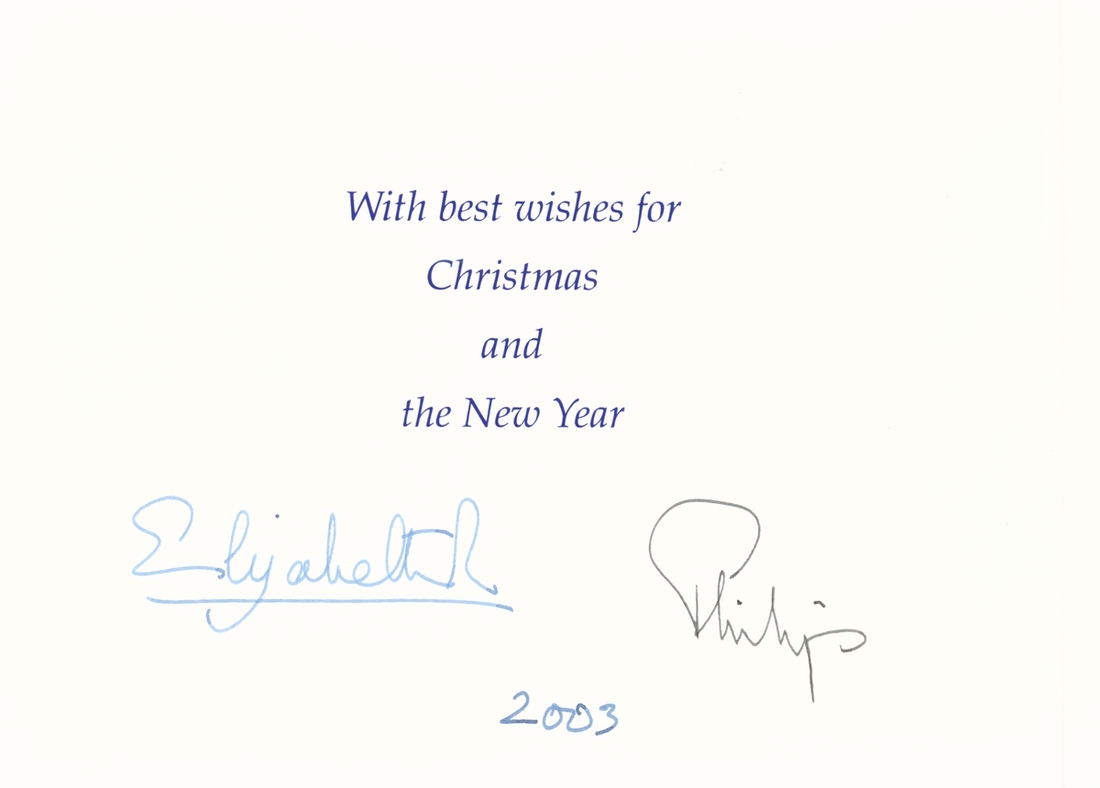 With best wishes for
Christmas
and
the New Year
Elizabeth R
Philip
2003